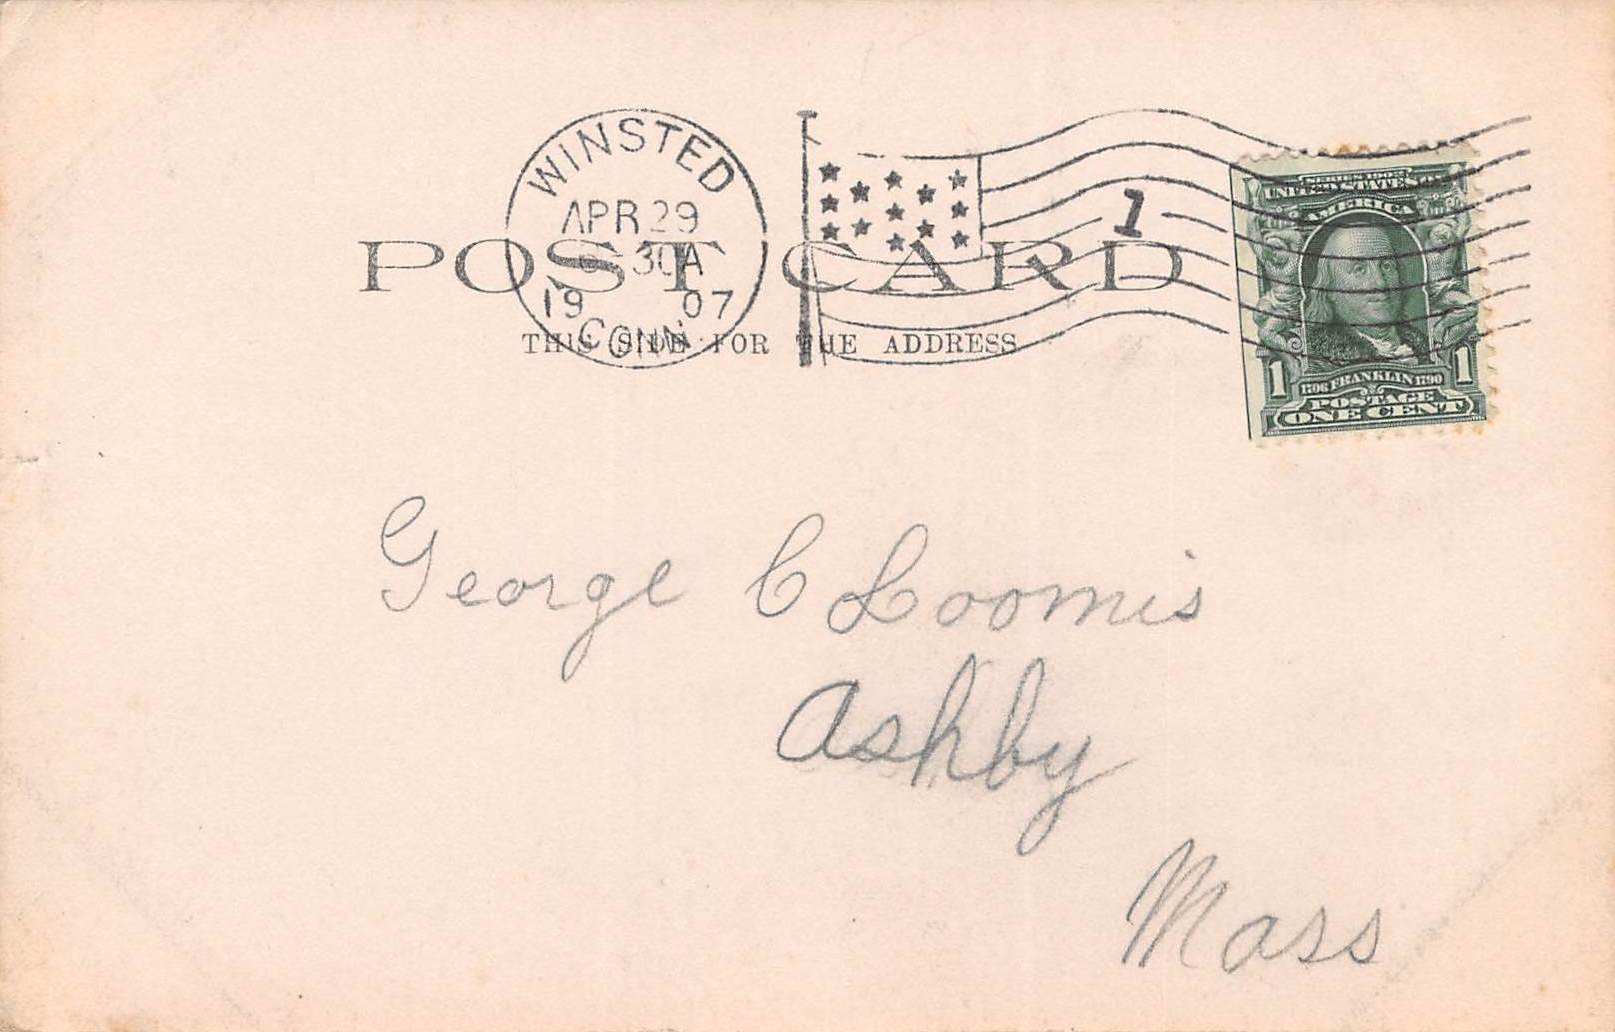 WINSTED
APR 29
30A
19 07
CONN.
1
POST CARD
THIS SIDE FOR THE ADDRESS
SERIES 1902
UNITED STATES OF
AMERICA
1 1706 FRANKLIN 1790 1
POSTAGE
ONE CENT
George C Loomis
Ashby
Mass